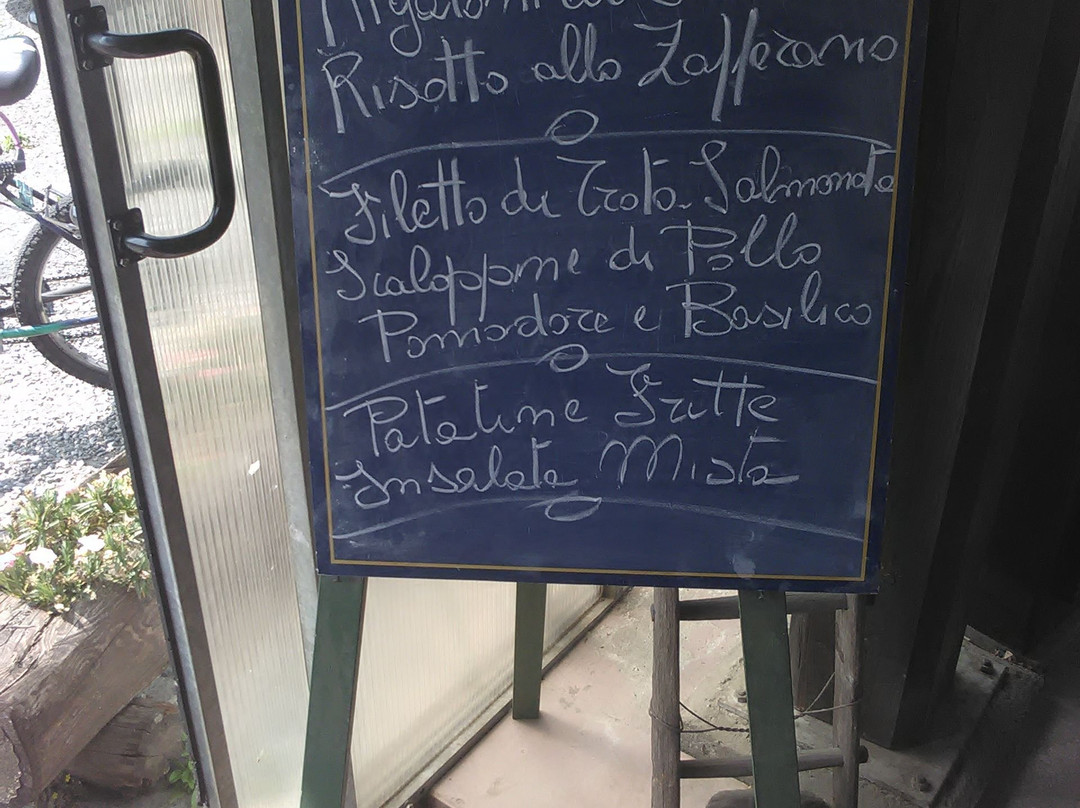 Rigatoni
Risotto allo Zafferano
Filetto di Trota Salmonata
Scaloppine di Pollo
Pomodoro e Basilico
Patatine Fritte
Insalata Mista